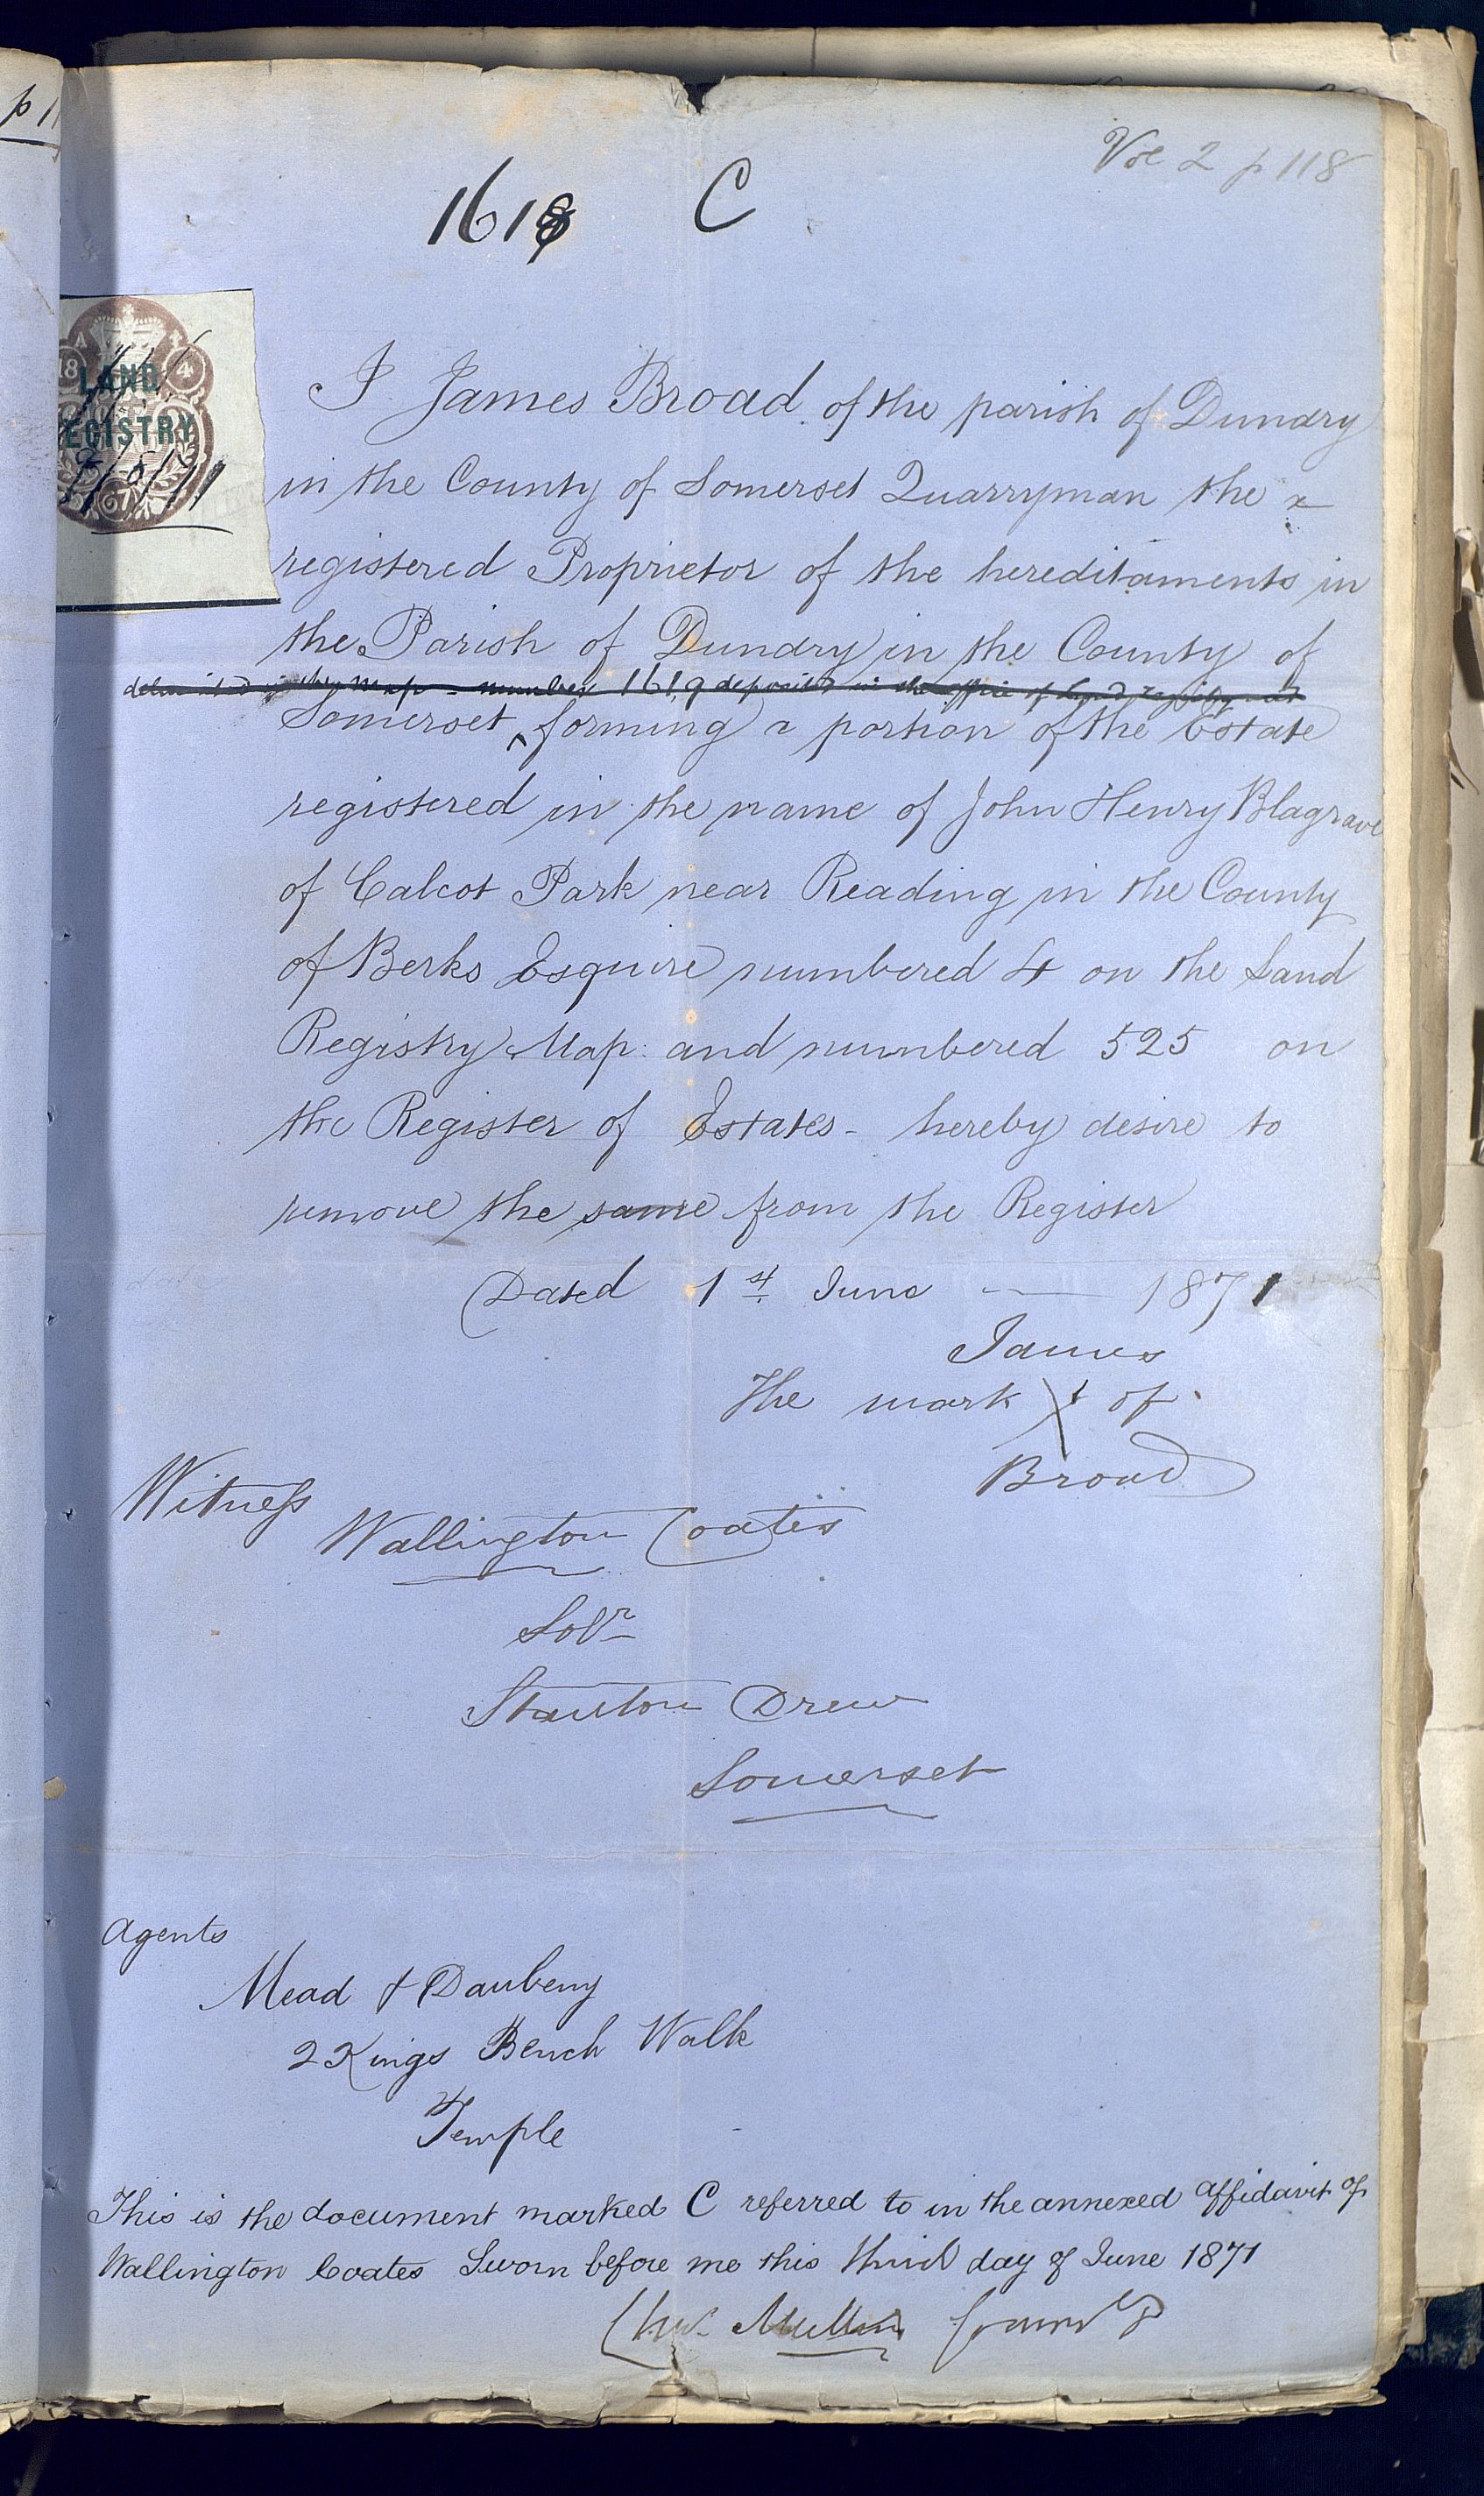 p 11
Vol 2 p 118
1618 C
LAND
REGISTRY
I James Broad of the parish of Dundry
in the County of Somerset Quarryman the
registered Proprietor of the hereditaments in
the Parish of Dundry in the County of
delineated in the map number 1619 deposited in the office of Land Registry and
Somerset ^ forming a portion of the Estate
registered in the name of John Henry Blagrave
of Calcot Park near Reading in the County
of Berks Esquire numbered 4 on the Land
Registry Map and numbered 525 on
the Register of Estates - hereby desire to
remove the same from the Register
Dated 1st June 1871
James
The mark X of
Broad
Witness
Wallington Coates
Solr
Stanton Drew
Somerset
Agents
Mead & Daubeny
2 Kings Bench Walk
Temple
This is the document marked C referred to in the annexed Affidavit of
Wallington Coates Sworn before me this third day of June 1871